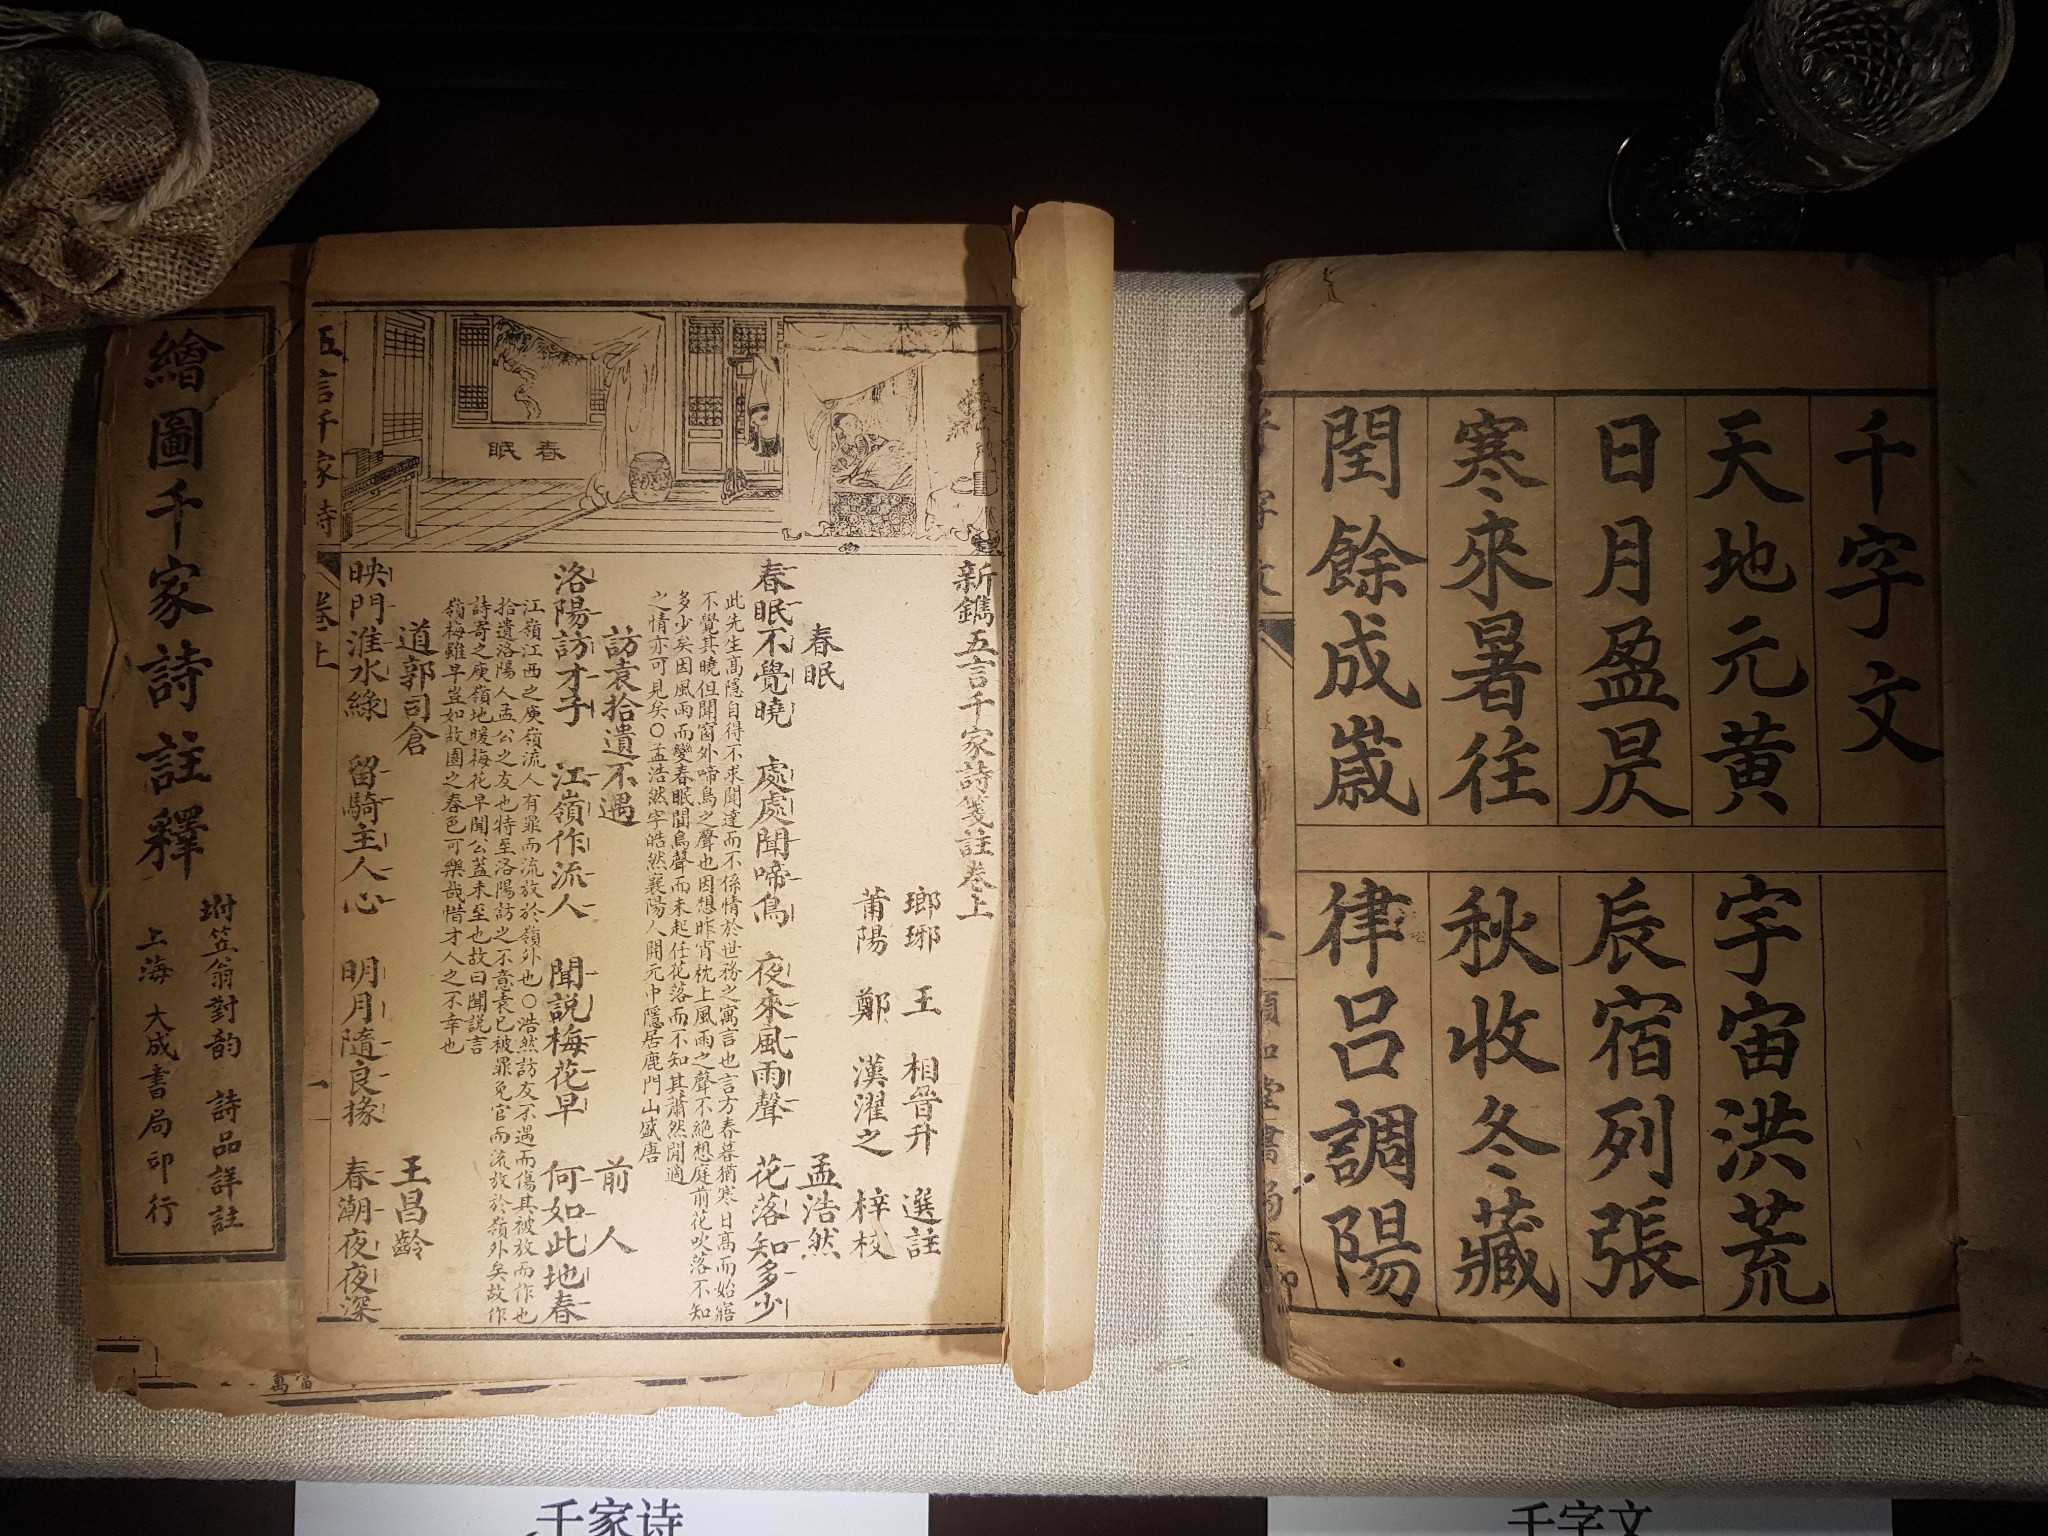 繪圖千家詩註釋
坿笠翁對韵 詩品詳註
上海大成書局印行
五言千家詩
卷上
春眠
新鐫五言千家詩箋註卷上
瑯琊 王 相晉升 選註
莆陽 鄭 漢濯之 梓校
春眠 孟浩然
春眠不覺曉 處處聞啼鳥 夜來風雨聲 花落知多少
此先生高隱自得不求聞達而不係情於世務之寓言也言方春暮猶寒日高而始寤
不覺其曉但聞窗外啼鳥之聲也因想昨宵枕上風雨之聲不絶想庭前花吹落不知
多少矣因風雨而變春眠聞鳥聲而未起任花落而不知其蕭然閒適
之情亦可見矣〇孟浩然字皓然襄陽人開元中隱居鹿門山盛唐
訪袁拾遺不遇 前人
洛陽訪才子 江嶺作流人 聞説梅花早 何如此地春
江嶺江西之庾嶺流人有罪而流放於嶺外也〇浩然訪友不遇而傷其被放而作也
拾遺洛陽人孟公之友也特至洛陽訪之不意袁已被罪免官而流放於嶺外矣故作
詩寄之庾嶺地暖梅花早聞公蓋未至也故曰聞説言
嶺梅雖早豈如故園之春色可樂哉惜才人之不幸也
道郭司倉 王昌齡
映門淮水綠 留騎主人心 明月隨良掾 春潮夜夜深
千字文
天地元黃 宇宙洪荒
日月盈昃 辰宿列張
寒來暑往 秋收冬藏
閏餘成歲 律呂調陽
千家诗
千字文